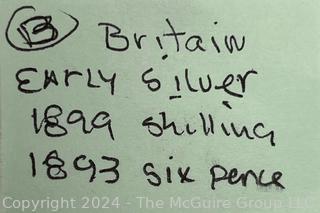 B Britain
EARLY Silver
1899 shilling
1893 six pence
Copyright 2024 - The McGuire Group LLC